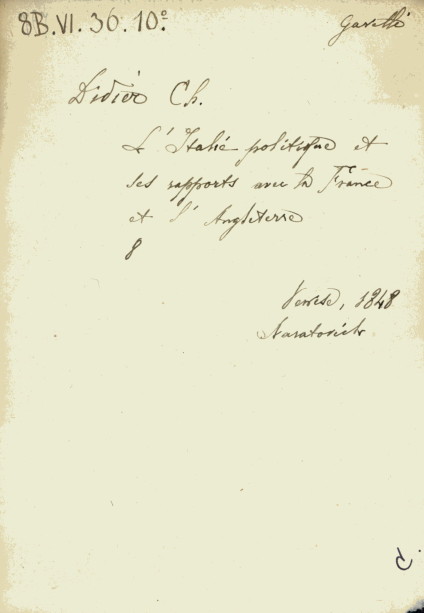 8B.VI.36.10º
Garetti
Didier Ch.
L'Italie politique et
ses rapports avec la France
et l'Angleterre
8
Venise, 1848
Naratovich